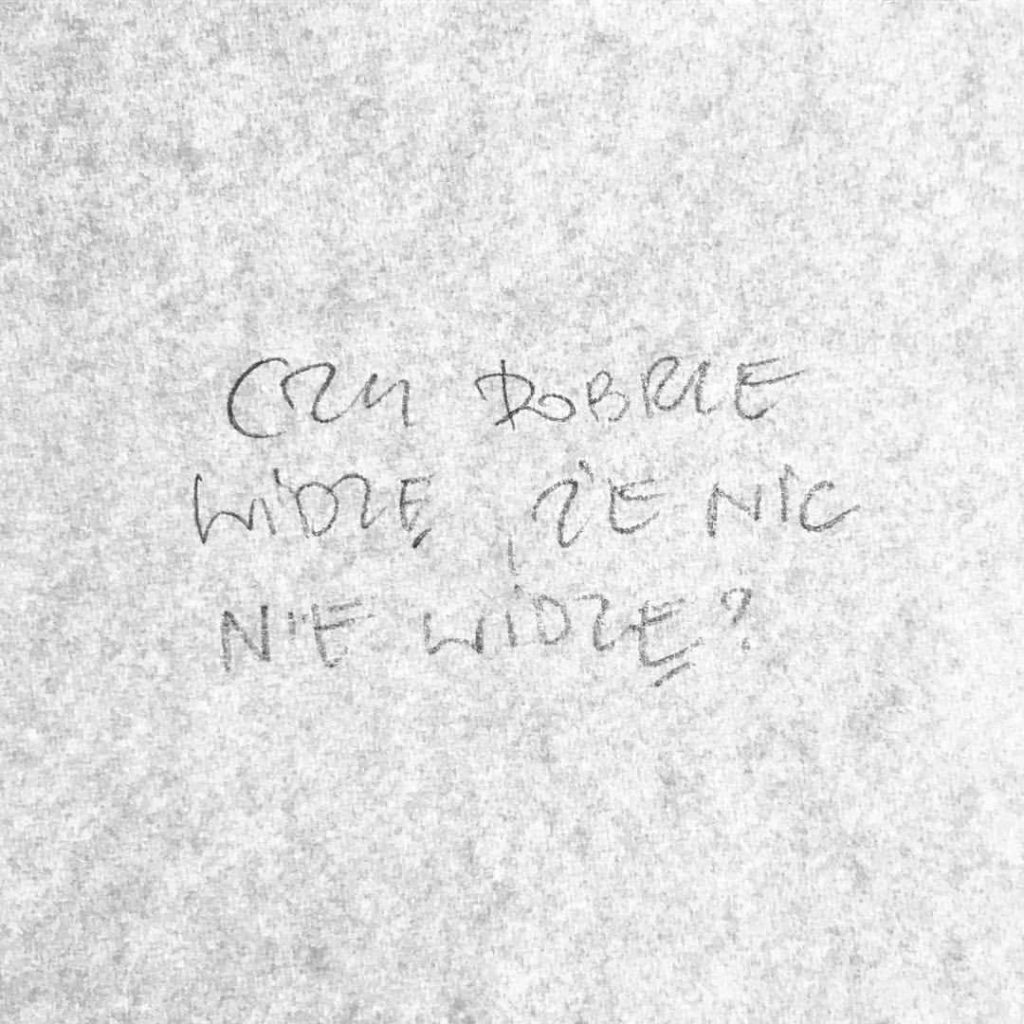 CZY DOBRZE
WIDZĘ, ŻE NIC
NIE WIDZĘ?